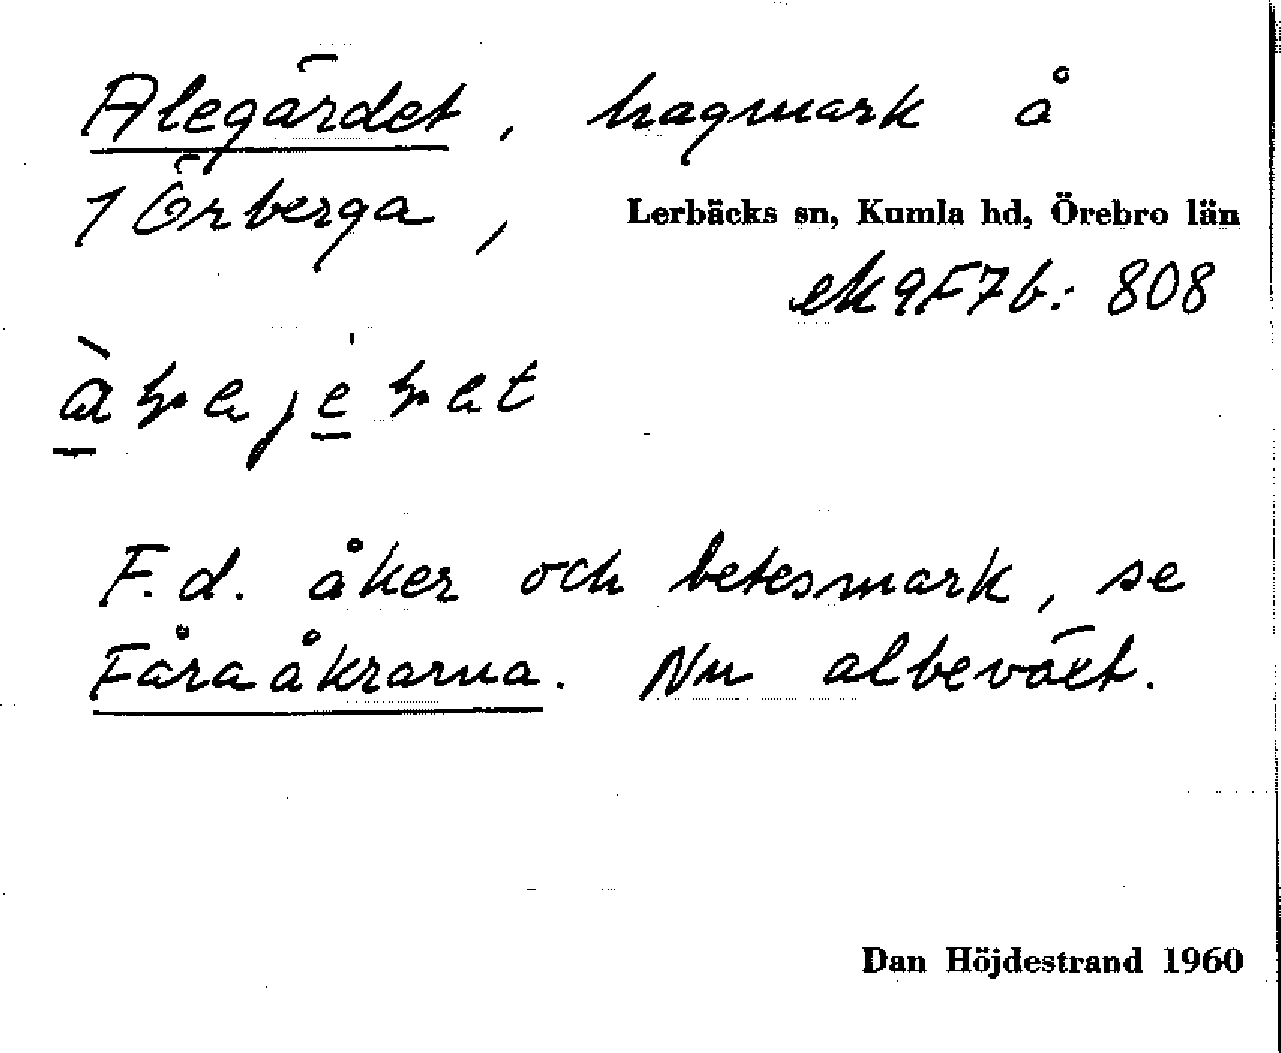 Alegärdet, hagmark å
1 Örberga,
Lerbäcks sn, Kumla hd, Örebro län
ek 9F7b: 808
F.d. åker och betesmark, se
Fåraåkrarna. Nu albeväxt.
Dan Höjdestrand 1960